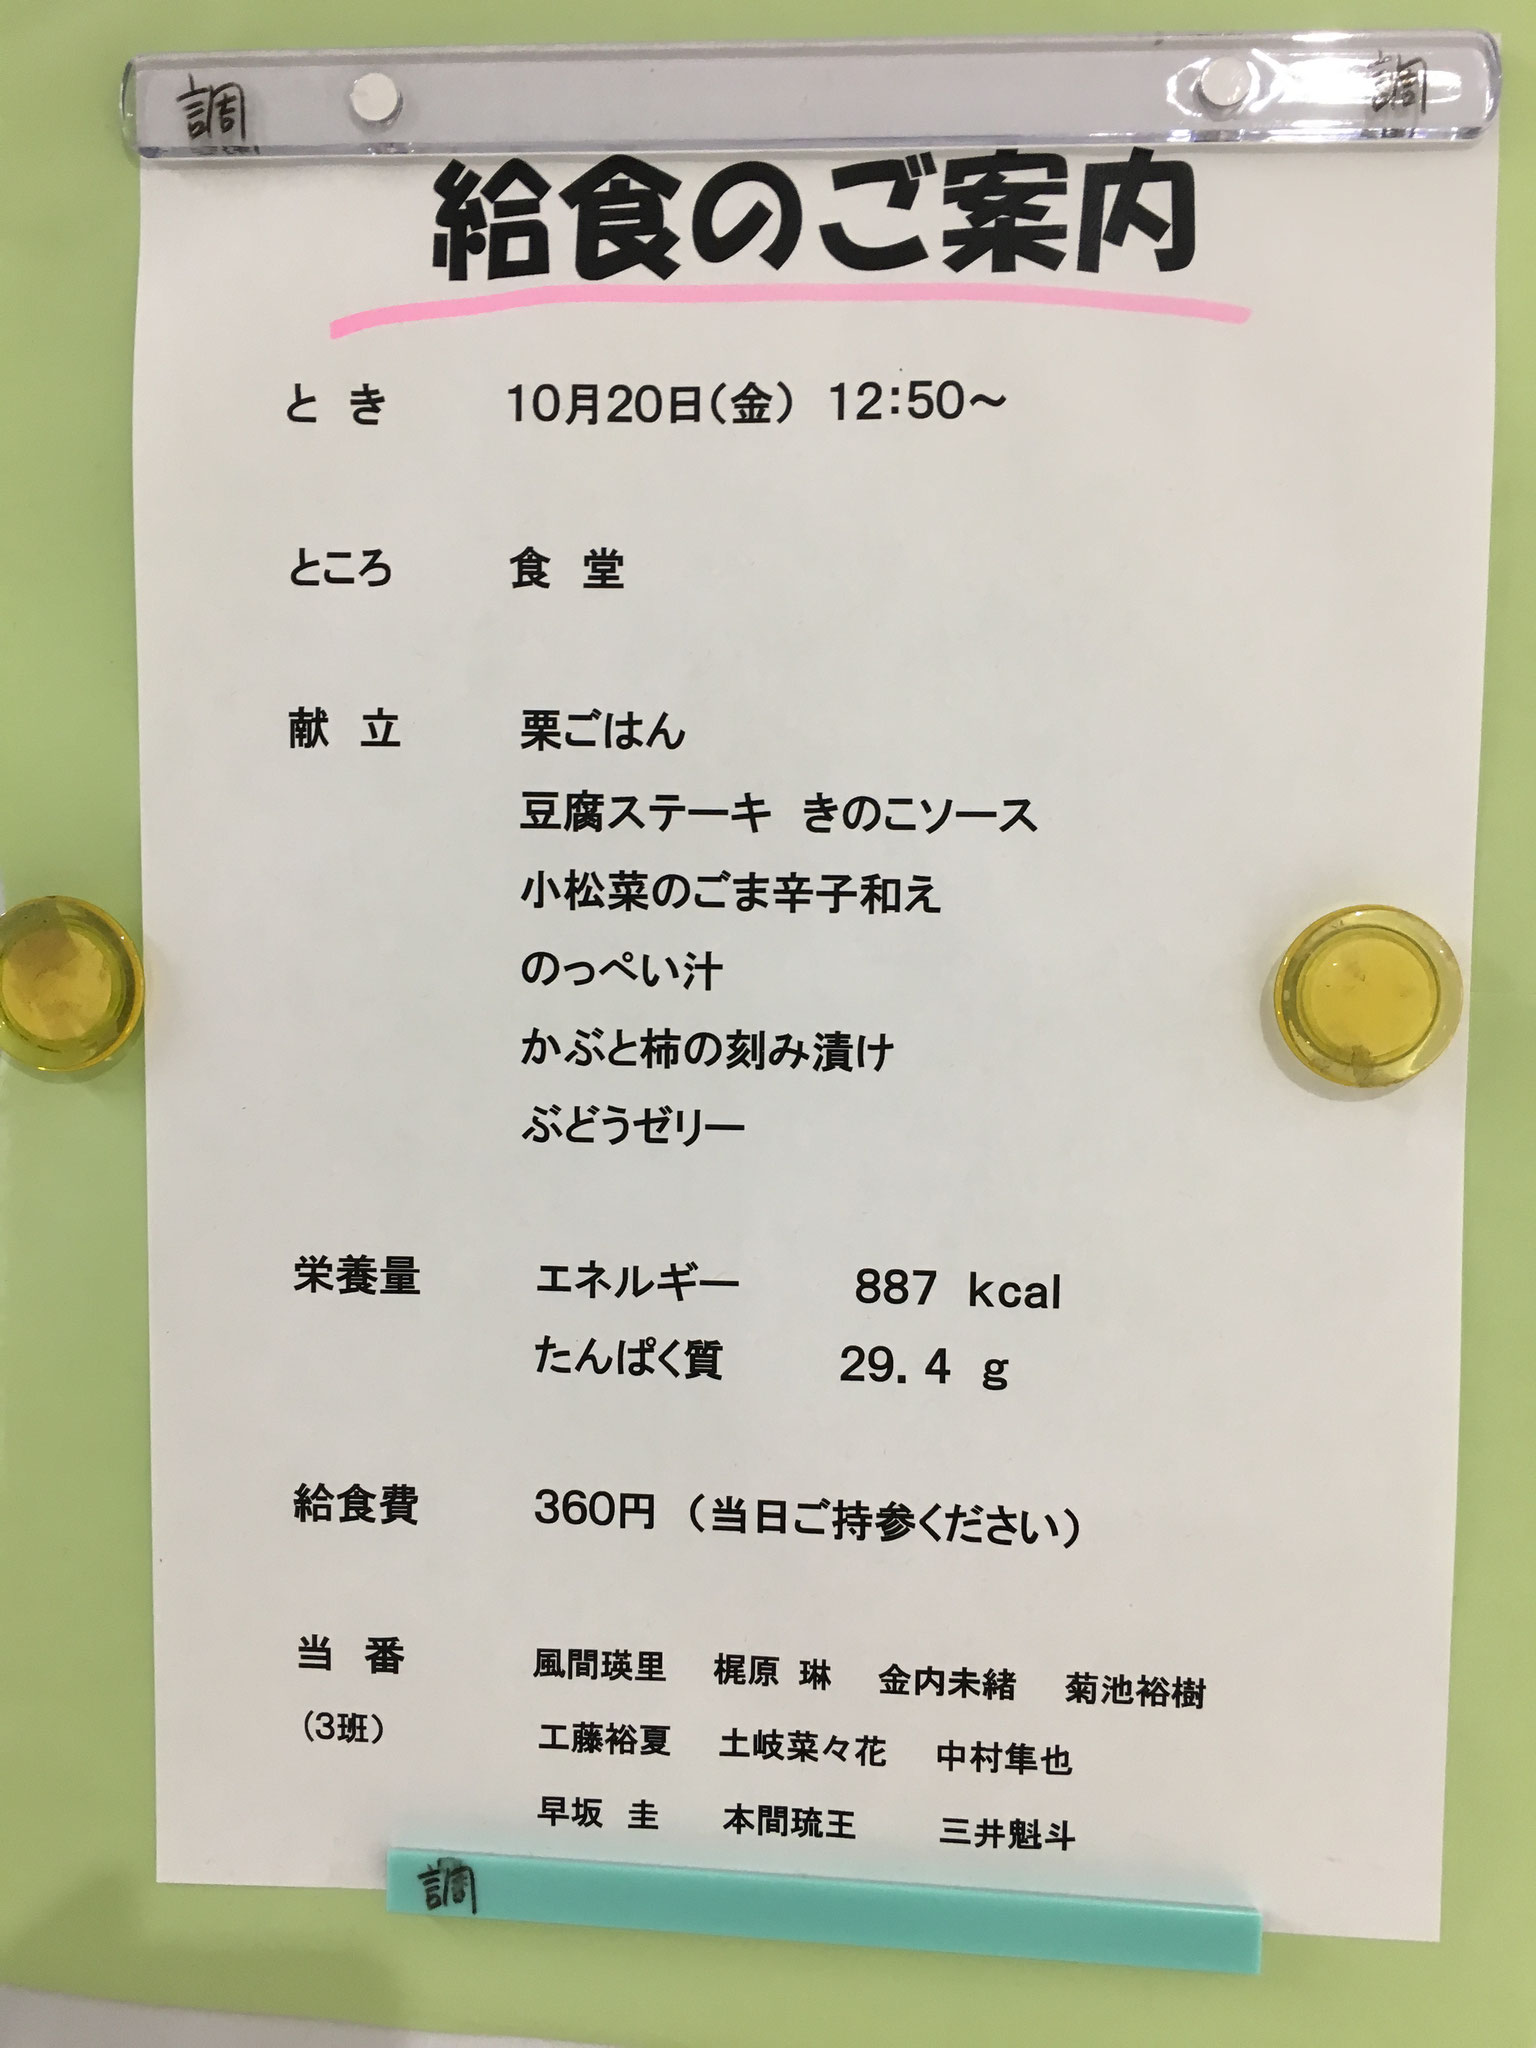 調 調
給食のご案内
と き 10月20日(金) 12:50～
ところ 食 堂
献 立 栗ごはん
豆腐ステーキ きのこソース
小松菜のごま辛子和え
のっぺい汁
かぶと柿の刻み漬け
ぶどうゼリー
栄養量 エネルギー 887 kcal
たんぱく質 29.4 g
給食費 360円 (当日ご持参ください)
当 番 風間瑛里 梶原 琳 金内未緒 菊池裕樹
(3班) 工藤裕夏 土岐菜々花 中村隼也
早坂 圭 本間琉王 三井魁斗
調